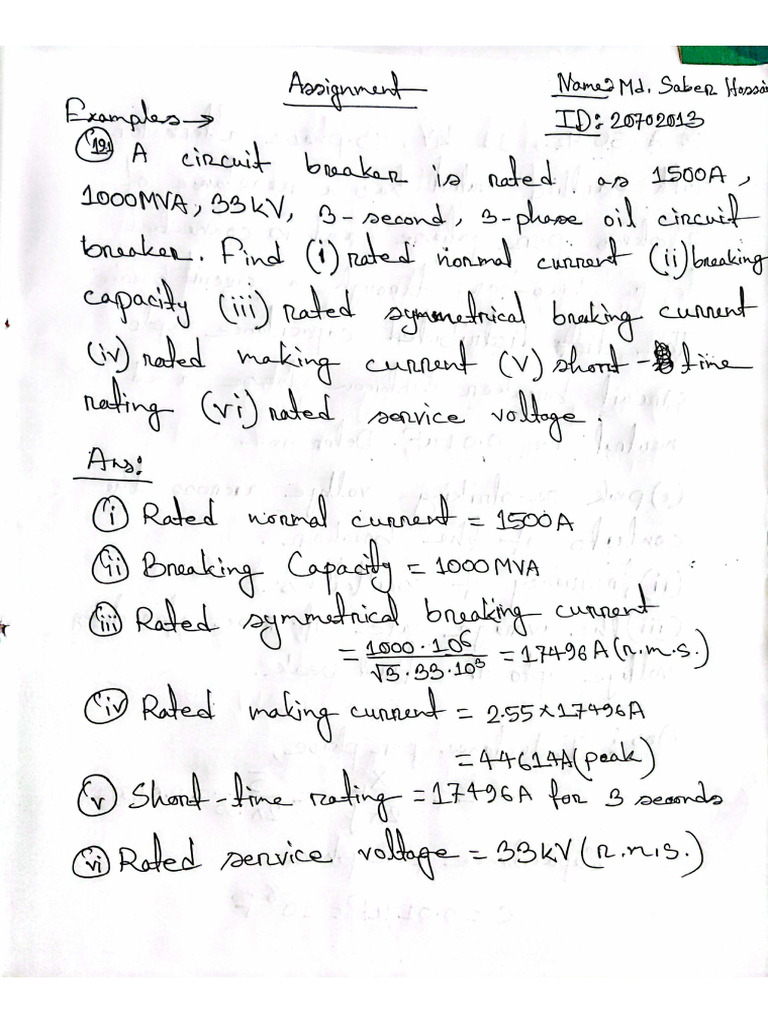 Assignment
Name: Md. Saber Hossai
ID: 20702013
Examples →
19.1 A circuit breaker is rated as 1500A,
1000MVA, 33kV, 3-second, 3-phase oil circuit
breaker. Find (i) rated normal current (ii) breaking
capacity (iii) rated symmetrical breaking current
(iv) rated making current (v) short-time
rating (vi) rated service voltage.
Ans:
(i) Rated normal current = 1500A
(ii) Breaking Capacity = 1000MVA
(iii) Rated symmetrical breaking current
= 1000·10⁶ / √3·33·10³ = 17496A (r.m.s.)
(iv) Rated making current = 2.55×17496A
= 44614A (peak)
(v) Short-time rating = 17496A for 3 seconds
(vi) Rated service voltage = 33kV (r.m.s.)